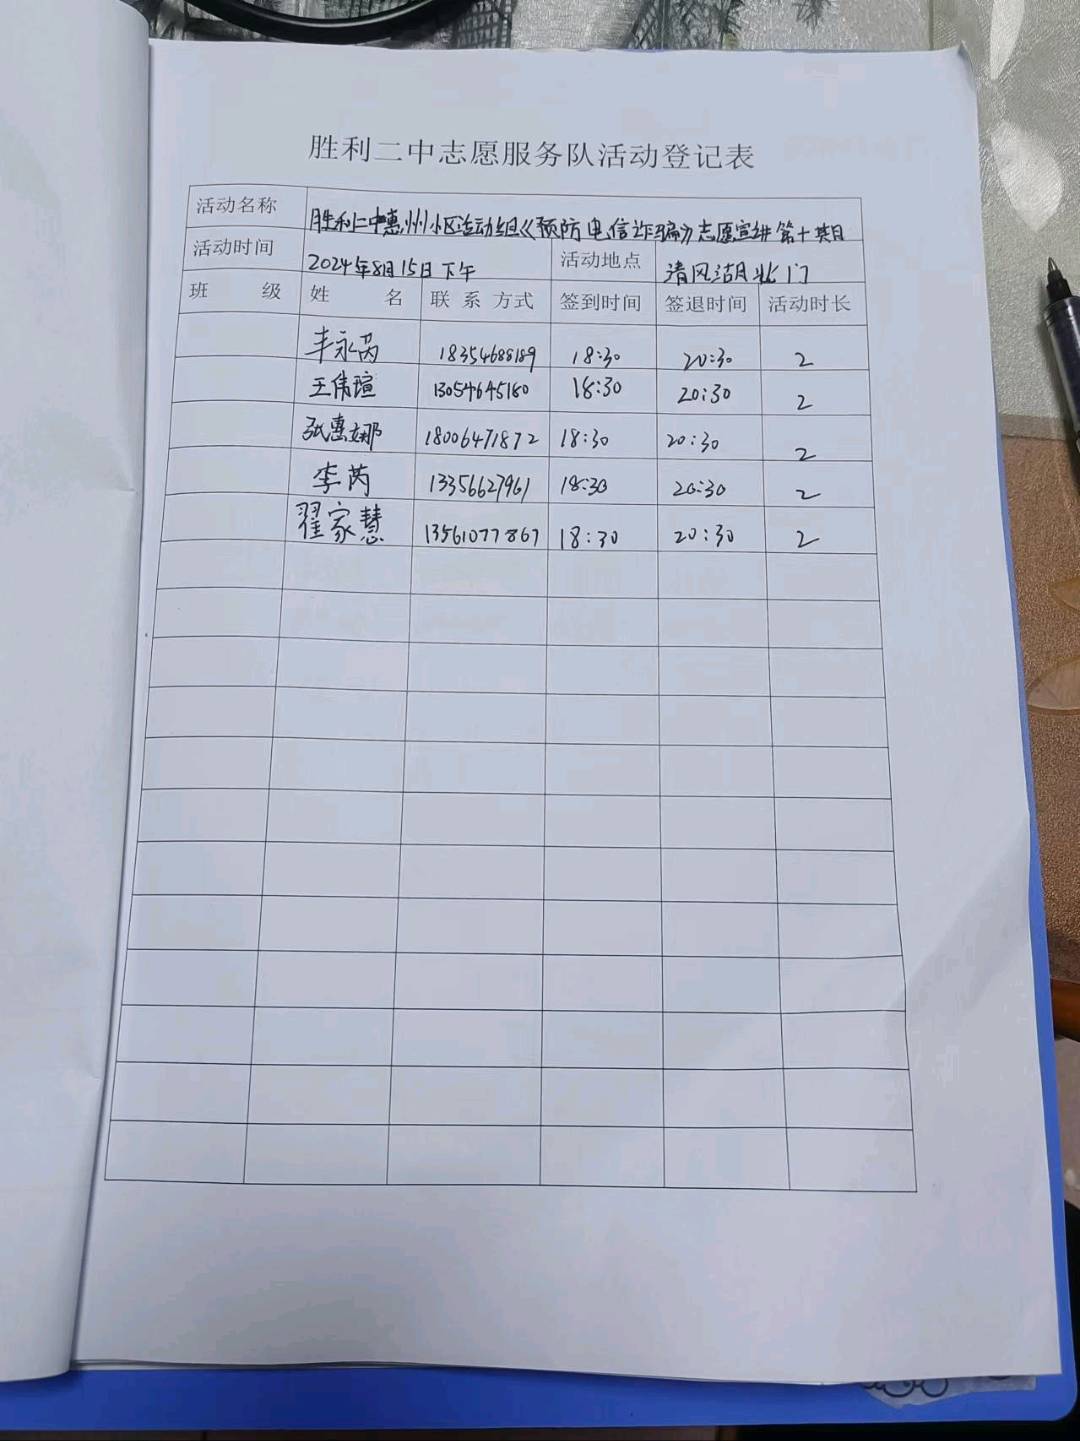 胜利二中志愿服务队活动登记表
活动名称 胜利二中惠州小区活动组《预防电信诈骗》志愿宣讲第十期
活动时间 2024年8月15日下午 活动地点 清风湖北门
班 级 姓 名 联 系 方式 签到时间 签退时间 活动时长
丰永芮 18354688189 18:30 20:30 2
王伟瑄 13054645180 18:30 20:30 2
张惠娜 18006471872 18:30 20:30 2
李芮 13356627961 18:30 20:30 2
翟家慧 13561077867 18:30 20:30 2